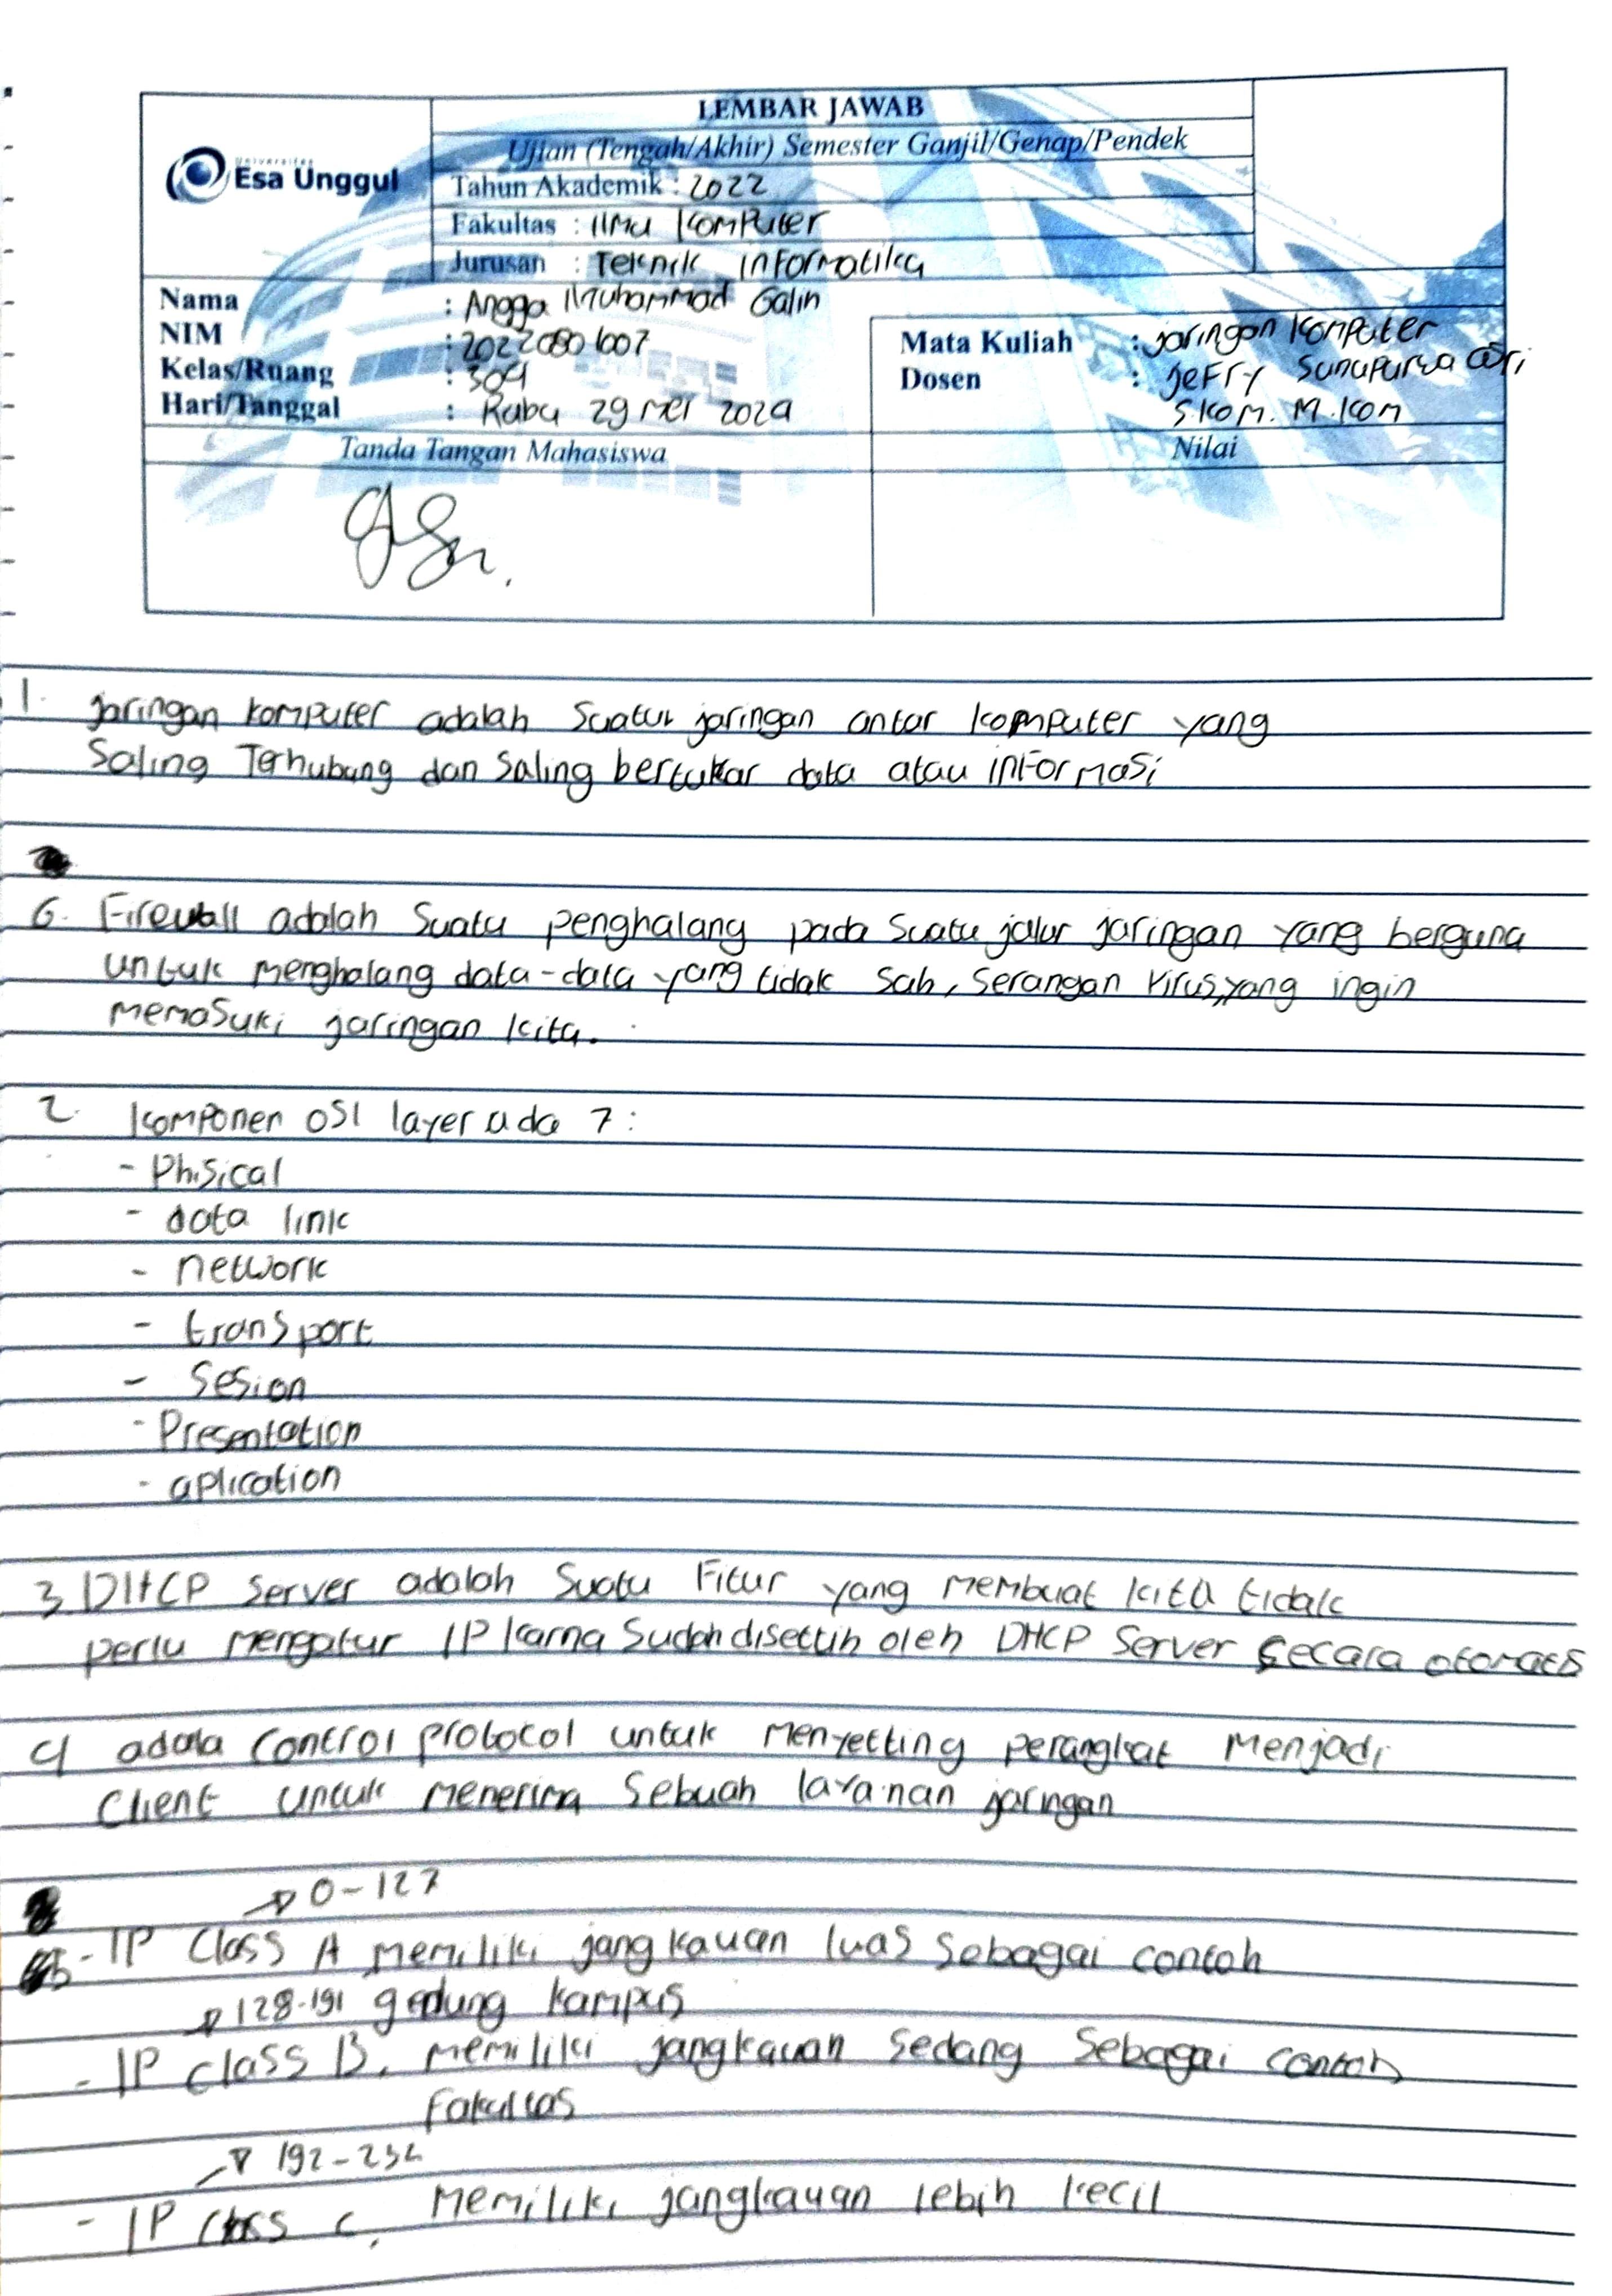 LEMBAR JAWAB
Ujian (Tengah/Akhir) Semester Ganjil/Genap/Pendek
Universitas
Esa Unggul
Tahun Akademik : 2022
Fakultas : Ilmu Komputer
Jurusan : Teknik Informatika
Nama : Angga Muhammad Galih
NIM : 20220801007
Kelas/Ruang : 304
Hari/Tanggal : Rabu 29 mei 2024
Mata Kuliah : jaringan Komputer
Dosen : Jefry
S.Kom. M.Kom
Tanda Tangan Mahasiswa
Nilai
1. jaringan komputer adalah Suatu jaringan antar komputer yang
Saling Terhubung dan Saling bertukar data atau informasi
6. Firewall adalah Suatu penghalang pada Suatu jalur jaringan yang berguna
untuk menghalang data-data yang tidak Sah, Serangan virus, yang ingin
memasuki jaringan kita.
2. Komponen OSI layer ada 7 :
- Phisical
- data link
- network
- transport
- Sesion
- Presentation
- aplication
3. DHCP Server adalah Suatu Fitur yang membuat kita tidak
perlu mengatur IP karna Sudah disettin oleh DHCP Server Secara otomatis
4 adala Control protocol untuk menyetting perangkat menjadi
Client untuk menerima Sebuah layanan jaringan
0-127
5 - IP Class A memiliki jangkauan luas Sebagai contoh
128-191 gedung kampus
- IP class B, memiliki jangkauan Sedang Sebagai contoh
Fakultas
192-
- IP Class C, memiliki jangkauan lebih kecil